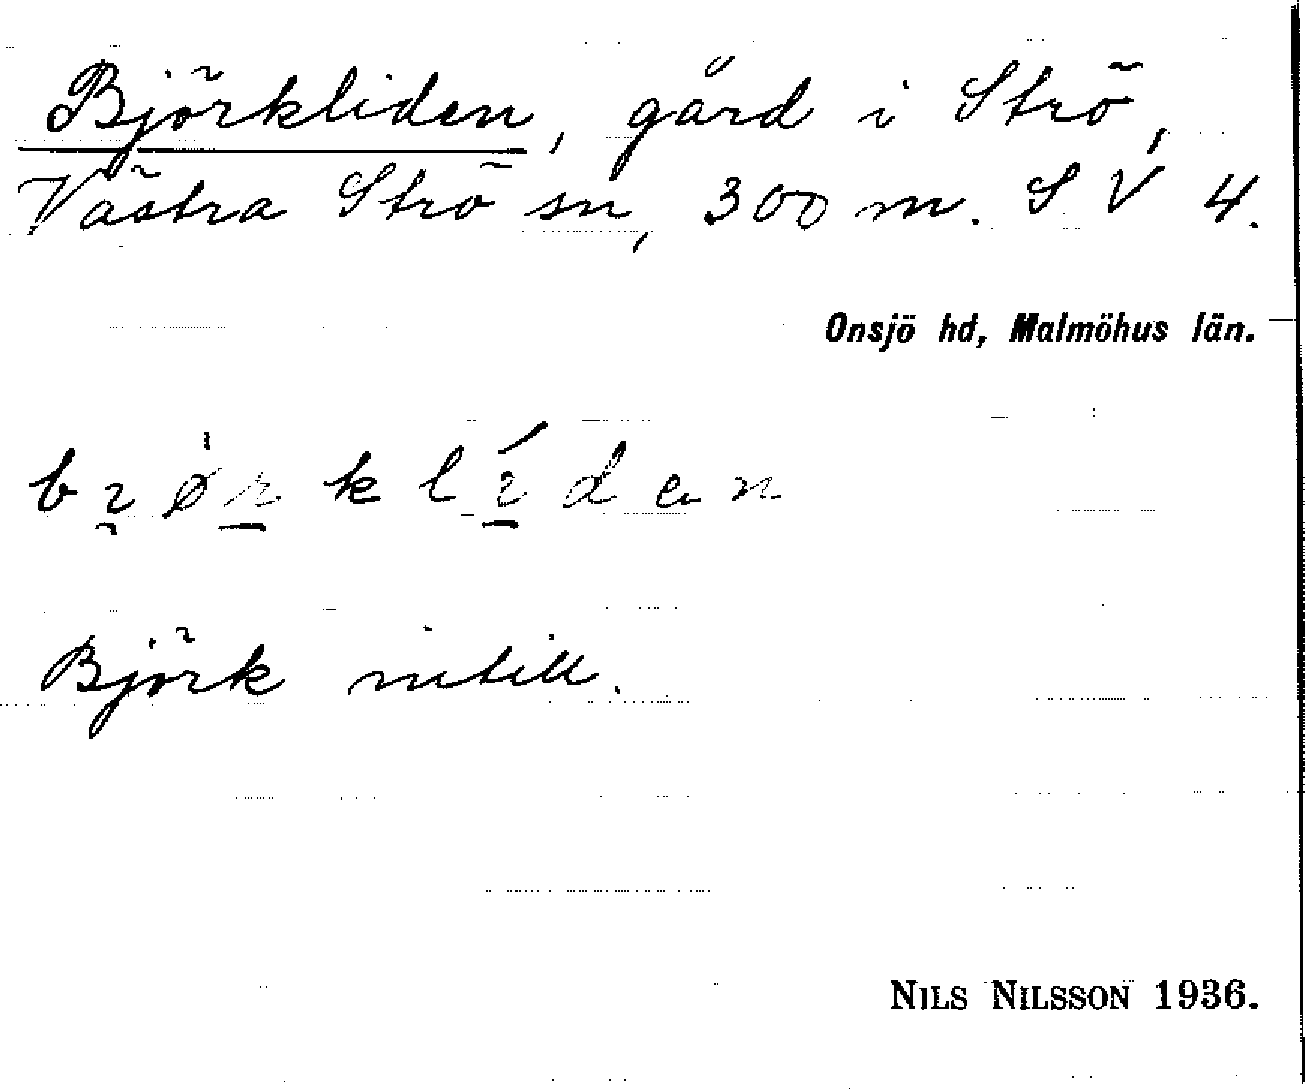 Björkliden, gård i Strö,
Västra Strö sn, 300 m. S V 4.
Onsjö hd, Malmöhus län.
Björk intill.
NILS NILSSON 1936.